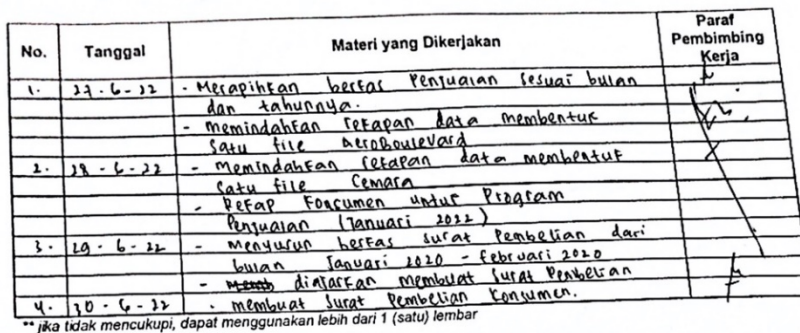 No. Tanggal Materi yang Dikerjakan Paraf Pembimbing Kerja
1. 27-6-22 - Merapihkan berkas Penjualan sesuai bulan
dan tahunnya.
- memindahkan rekapan data membentuk
satu file AeroBoulevard
2. 28-6-22 - Memindahkan rekapan data membentuk
satu file Cemara
- Rekap Konsumen untuk Program
Penjualan (Januari 2022)
3. 29-6-22 - Menyusun berkas surat Pembelian dari
bulan Januari 2020 - februari 2020
- diajarkan membuat Surat Pembelian
4. 30-6-22 - membuat Surat Pembelian Konsumen.
** jika tidak mencukupi, dapat menggunakan lebih dari 1 (satu) lembar